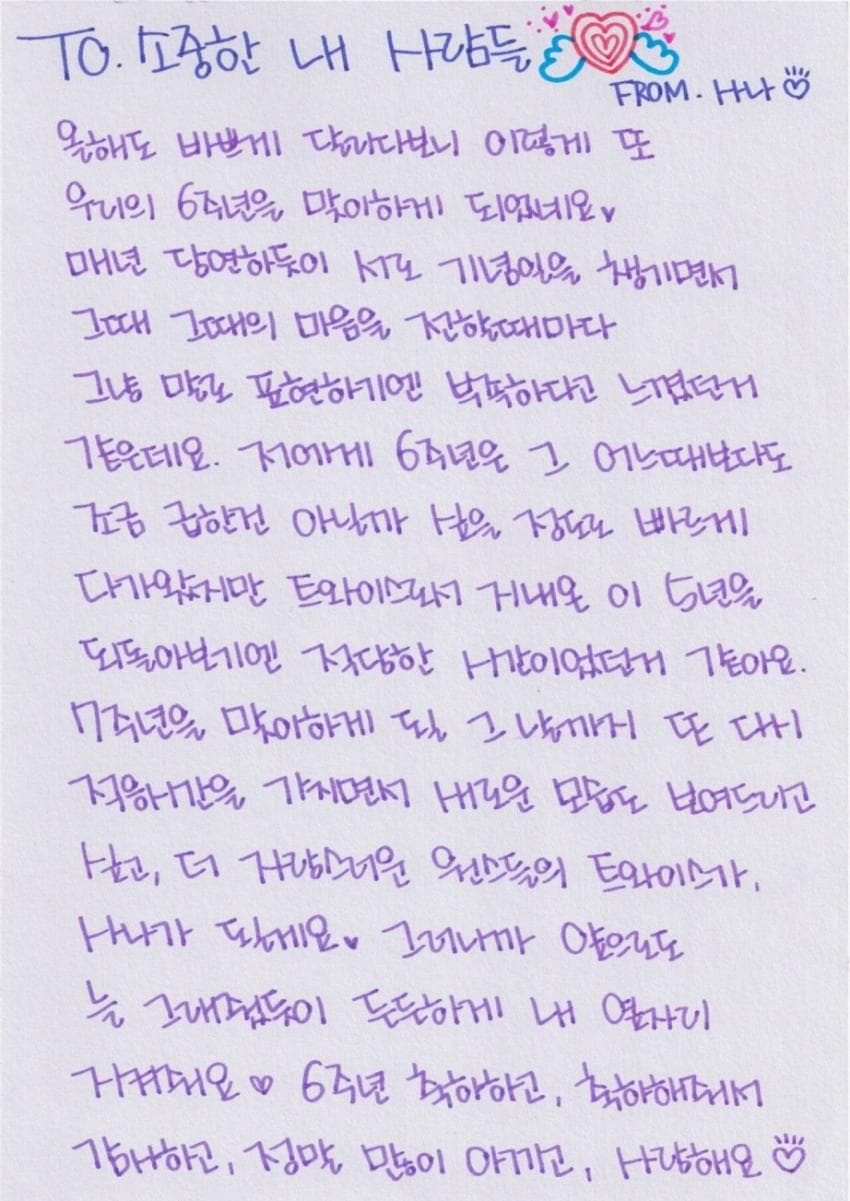 TO. 소중한 내 사람들
FROM. 사나
올해도 바쁘게 달리다보니 이렇게 또
우리의 6주년을 맞이하게 되었네요♥
매년 당연하듯이 서로 기념일을 챙기면서
그때 그때의 마음을 전할때마다
그냥 말로 표현하기엔 부족하다고 느꼈던거
같은데요. 저에게 6주년은 그 어느때보다도
조금 급한건 아닐까 싶을 정도로 빠르게
다가왔지만 트와이스로서 지내온 이 5년을
되돌아보기엔 적당한 시간이었던거 같아요.
7주년을 맞이하게 될 그 날까지 또 다시
적응시간을 가지면서 새로운 모습도 보여드리고
싶고, 더 자랑스러운 원스들의 트와이스가,
사나가 될게요♥ 그러니까 앞으로도
늘 그래줬듯이 든든하게 내 옆자리
지켜줘요♡ 6주년 축하하고, 축하해줘서
감사하고, 정말 많이 아끼고, 사랑해요♡